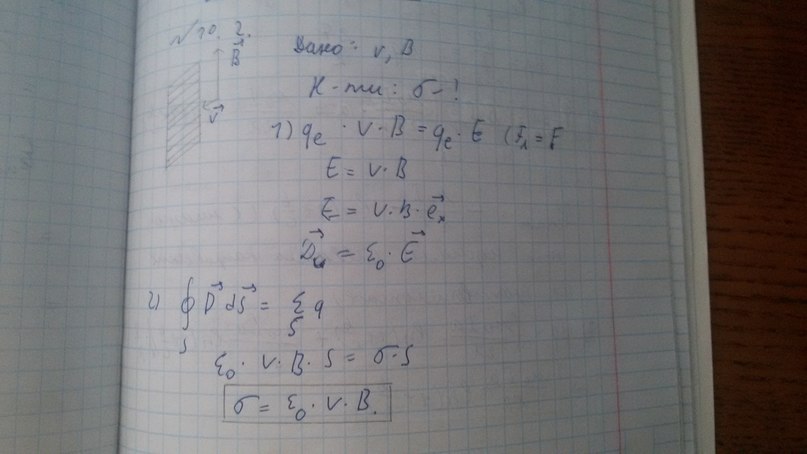 N 10. 2.
B⃗
v⃗
Дано: v, B
Н-ти: σ-!
1) qₑ · v · B = qₑ · E (Fл = F
E = v · B
E⃗ = v · B · e⃗ₓ
D⃗ = ε₀ · E⃗
2) ∮ D⃗ dS⃗ = Σ q
S S
ε₀ · v · B · S = σ · S
σ = ε₀ · v · B.